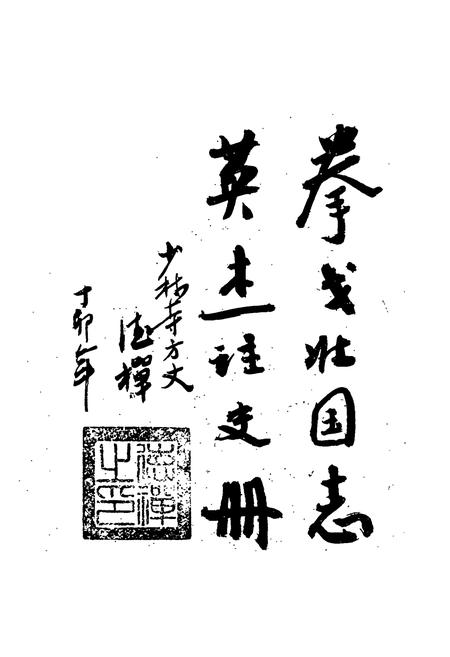 拳戈壮国志
英杰註史册
少林寺方丈
德禅
丁卯年
德禅之印